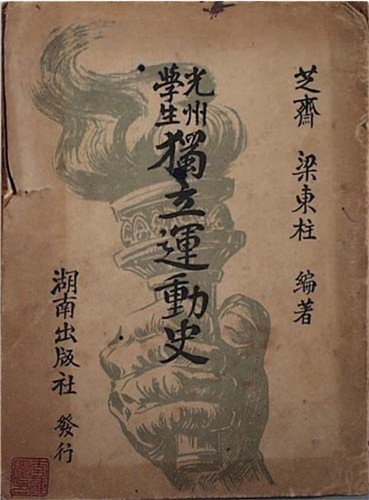 芝齋 梁東柱 編著
光州
學生
獨立運動史
湖南出版社 發行